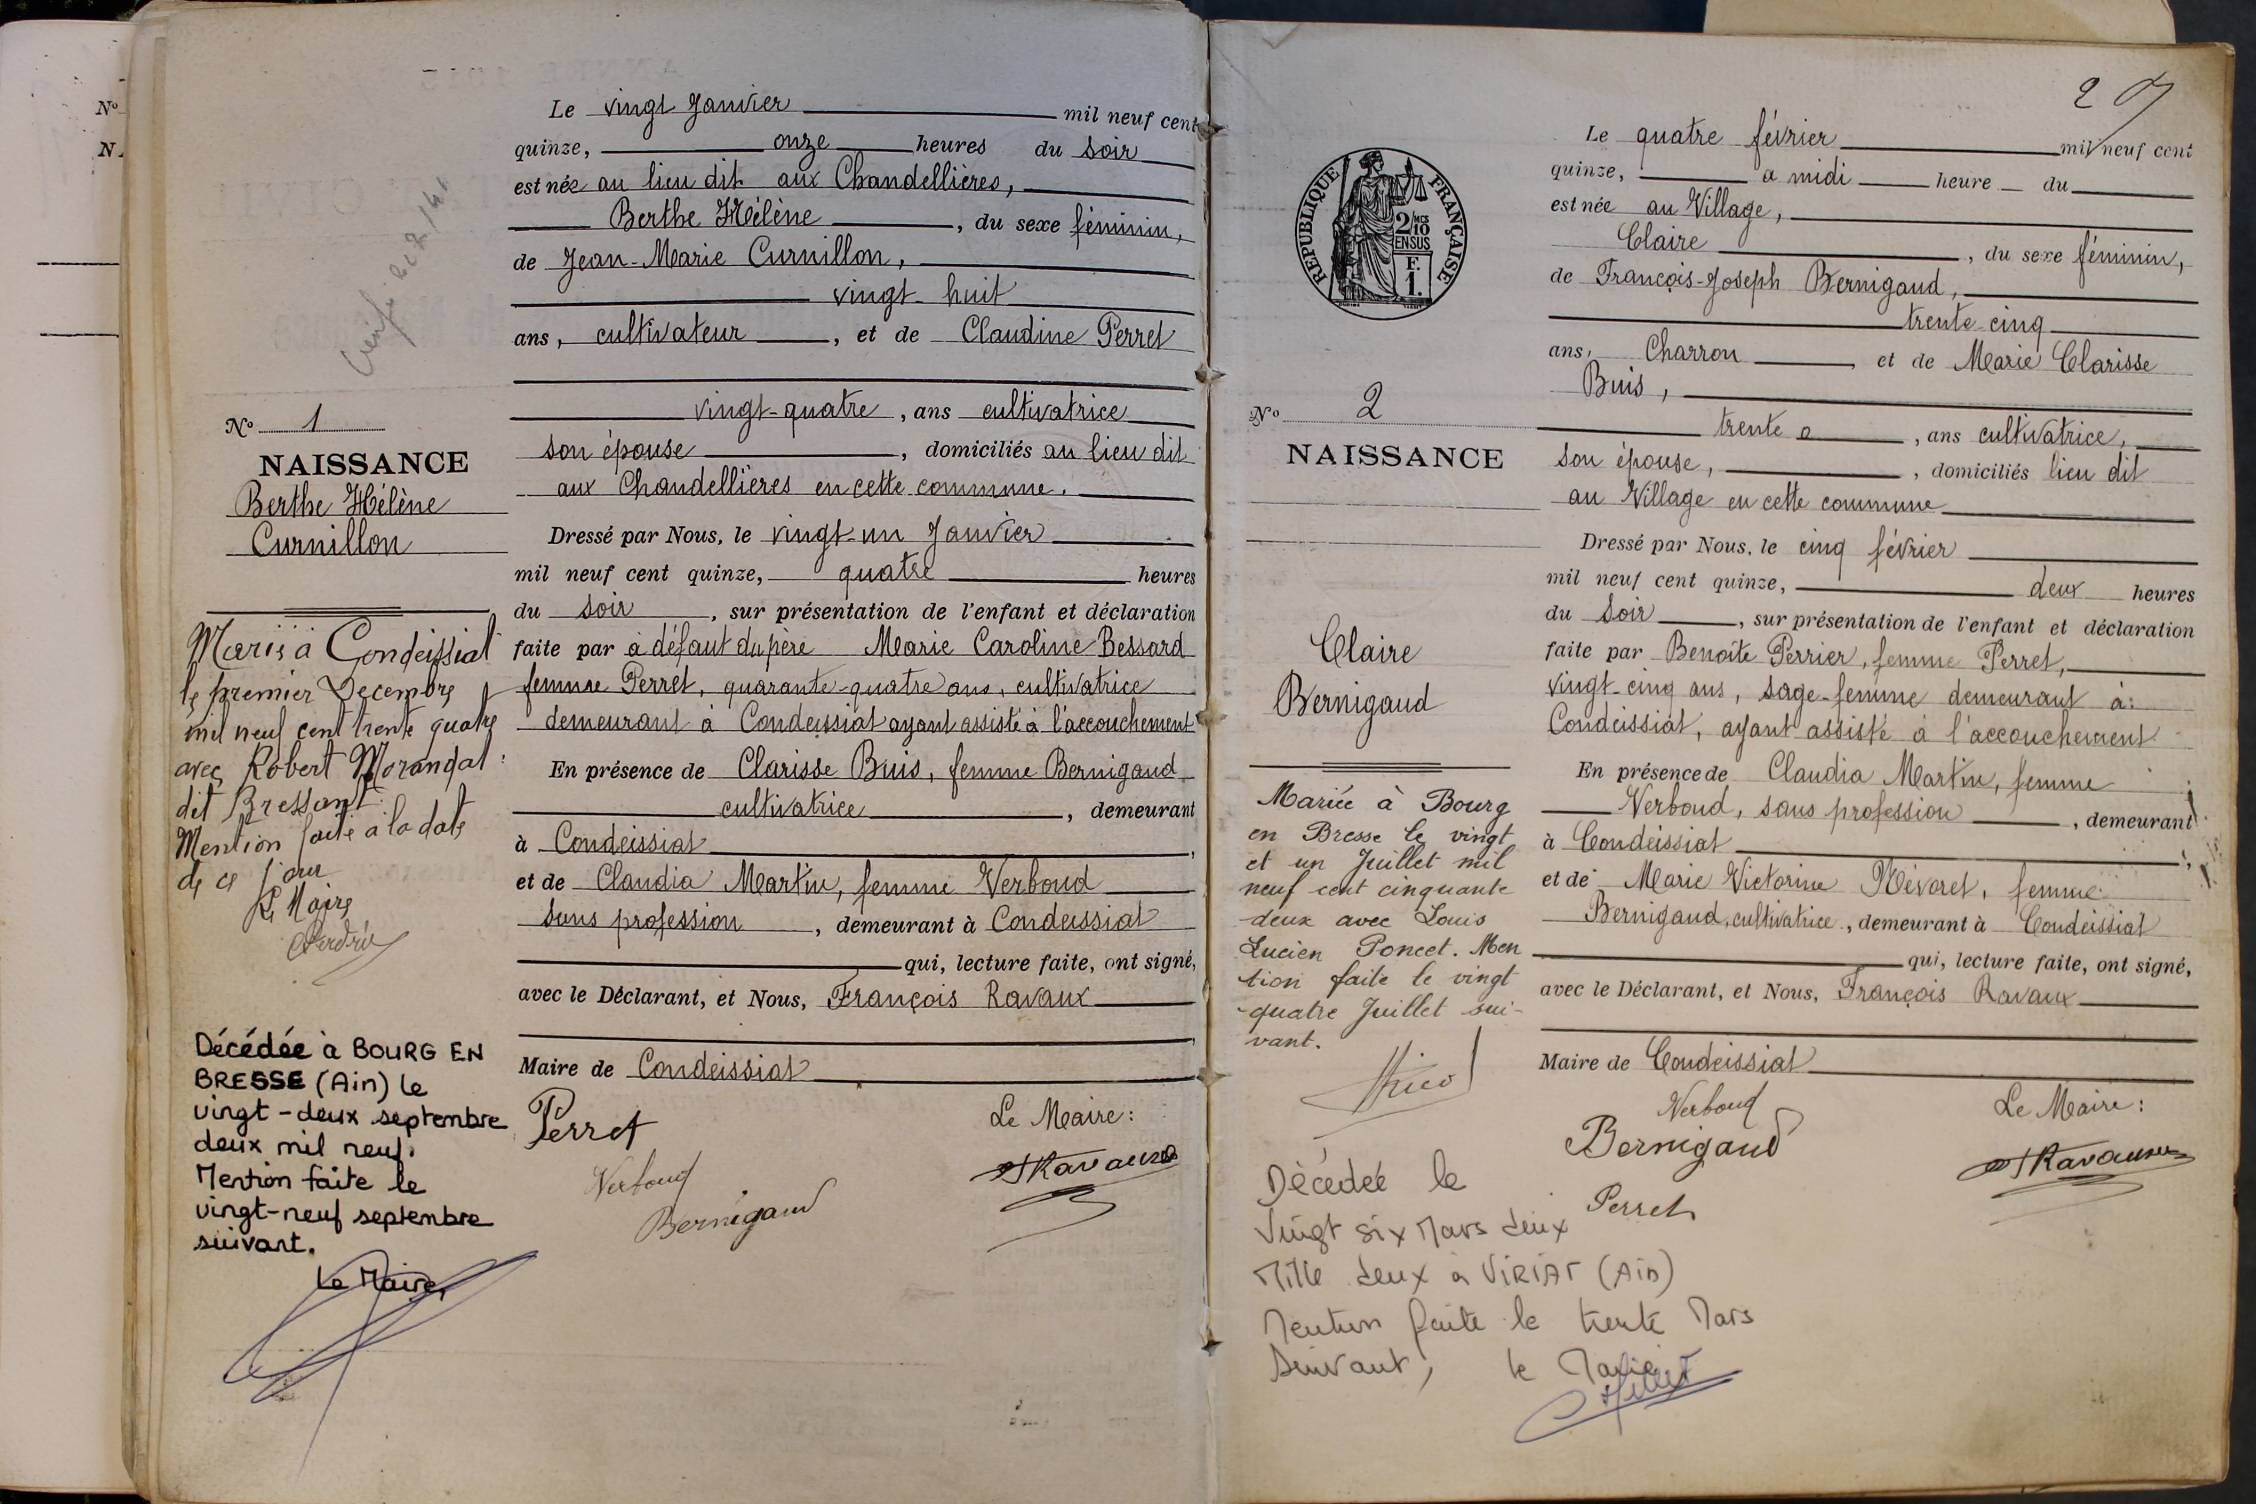 Nº
N
Le vingt Janvier mil neuf cent
quinze, onze heures du soir
est née au lieu dit aux Chandellières,
Berthe Hélène, du sexe féminin,
de Jean-Marie Curnillon,
vingt-huit
ans, cultivateur, et de Claudine Perret
vingt-quatre, ans cultivatrice
son épouse, domiciliés au lieu dit
aux Chandellières en cette commune.
Dressé par Nous, le vingt-un Janvier
mil neuf cent quinze, quatre heures
du soir, sur présentation de l'enfant et déclaration
faite par à défaut du père Marie Caroline Bessard
femme Perret, quarante-quatre ans, cultivatrice
demeurant à Condeissiat ayant assisté à l'accouchement
En présence de Clarisse Buis, femme Bernigaud
cultivatrice, demeurant
à Condeissiat,
et de Claudia Martin, femme Verboud
sans profession, demeurant à Condeissiat
qui, lecture faite, ont signé,
avec le Déclarant, et Nous, François Ravaux
Maire de Condeissiat
Perret
Le Maire:
Verboud
Bernigaud
Ravaux
Nº 1
NAISSANCE
Berthe Hélène
Curnillon
Mariée à Condeissiat
le premier Decembre
mil neuf cent trente quatre
avec Robert Morandat
dit Bressant
Mention faite à la date
de ce jour
Le Maire
Décédée à BOURG EN
BRESSE (Ain) le
vingt-deux septembre
deux mil neuf.
Mention faite le
vingt-neuf septembre
suivant.
Le Maire,
2
Le quatre février mil neuf cent
quinze, a midi heure du
est née au Village,
Claire, du sexe féminin,
de François-Joseph Bernigaud,
trente-cinq
ans, Charron et de Marie Clarisse
Buis,
trente, ans cultivatrice,
son épouse, domiciliés lieu dit
au Village en cette commune
Dressé par Nous, le cinq février
mil neuf cent quinze, deux heures
du soir, sur présentation de l'enfant et déclaration
faite par Benoîte Perrier, femme Perret,
vingt-cinq ans, sage-femme demeurant à:
Condeissiat, ayant assisté à l'accouchement
En présence de Claudia Martin, femme
Verboud, sans profession, demeurant
à Condeissiat,
et de Marie Victorine Névoret, femme
Bernigaud, cultivatrice, demeurant à Condeissiat
qui, lecture faite, ont signé,
avec le Déclarant, et Nous, François Ravaux
Maire de Condeissiat
Verboud
Le Maire:
Bernigaud
Ravaux
Perret
RÉPUBLIQUE FRANÇAISE
2/10 MES
EN SUS
F.
1.
Nº 2
NAISSANCE
Claire
Bernigaud
Mariée à Bourg
en Bresse le vingt
et un Juillet mil
neuf cent cinquante
deux avec Louis
Lucien Poncet. Men
tion faite le vingt
quatre Juillet sui-
vant.
Décédée le
Vingt six Mars deux
Mille deux à VIRIAT (Ain)
Mention faite le trente Mars
Suivant, le Maire